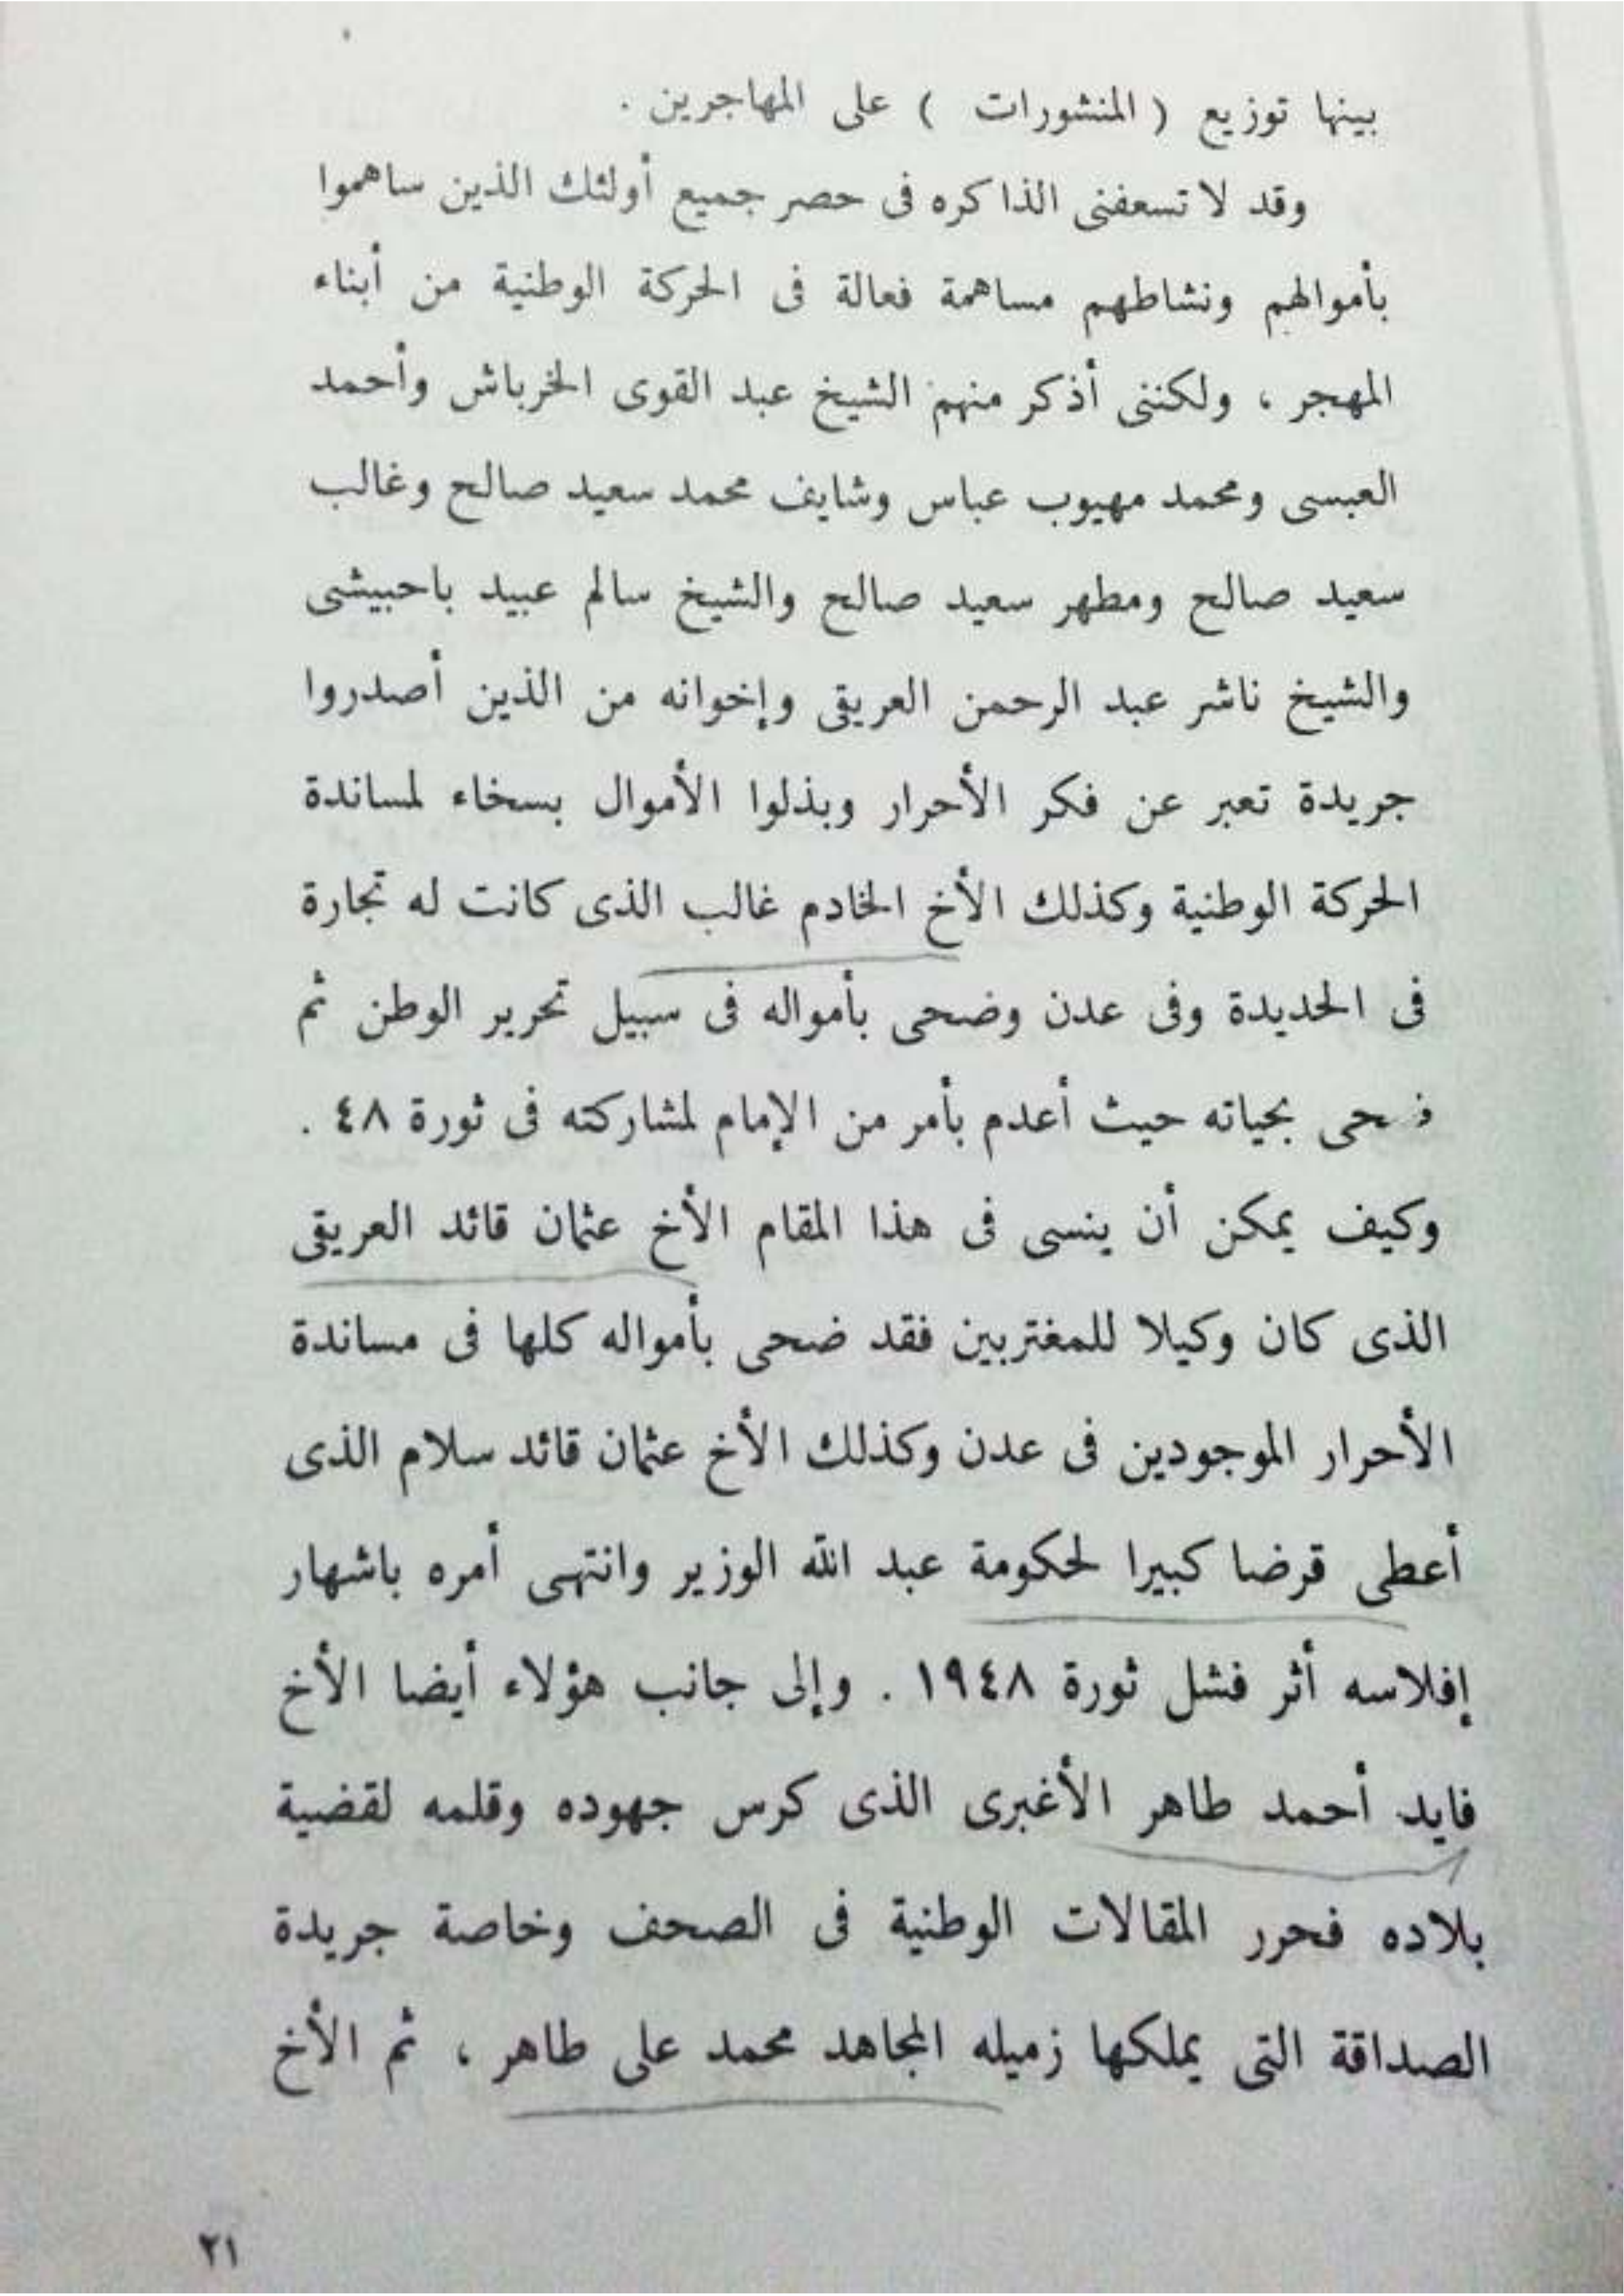 بينها توزيع ( المنشورات ) على المهاجرين .
وقد لا تسعفنى الذاكره فى حصر جميع أولئك الذين ساهموا
بأموالهم ونشاطهم مساهمة فعالة فى الحركة الوطنية من أبناء
المهجر ، ولكننى أذكر منهم الشيخ عبد القوى الخرباش وأحمد
العبسى ومحمد مهيوب عباس وشايف محمد سعيد صالح وغالب
سعيد صالح ومطهر سعيد صالح والشيخ سالم عبيد باحبيشى
والشيخ ناشر عبد الرحمن العريقى وإخوانه من الذين أصدروا
جريدة تعبر عن فكر الأحرار وبذلوا الأموال بسخاء لمساندة
الحركة الوطنية وكذلك الأخ الخادم غالب الذى كانت له تجارة
فى الحديدة وفى عدن وضحى بأمواله فى سبيل تحرير الوطن ثم
ضحى بحياته حيث أعدم بأمر من الإمام لمشاركته فى ثورة ٤٨ .
وكيف يمكن أن ينسى فى هذا المقام الأخ عثمان قائد العريقى
الذى كان وكيلا للمغتربين فقد ضحى بأمواله كلها فى مساندة
الأحرار الموجودين فى عدن وكذلك الأخ عثمان قائد سلام الذى
أعطى قرضا كبيرا لحكومة عبد الله الوزير وانتهى أمره باشهار
إفلاسه أثر فشل ثورة ١٩٤٨ . وإلى جانب هؤلاء أيضا الأخ
فايد أحمد طاهر الأغبرى الذى كرس جهوده وقلمه لقضية
بلاده فحرر المقالات الوطنية فى الصحف وخاصة جريدة
الصداقة التى يملكها زميله المجاهد محمد على طاهر ، ثم الأخ
٢١